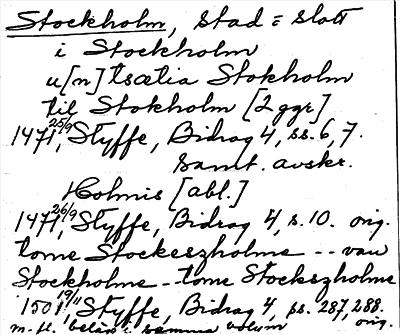 Stockholm, stad = slott
i Stockholm
u[n]tsætia Stokholm
til Stokholm [2 ggr]
1471 25/9, Styffe, Bidrag 4, ss. 6, 7.
samt. avskr.
Holmis [abl.]
1471 26/9, Styffe, Bidrag 4, s. 10. orig.
tome Stockeszholme -- van
Stockholme -- tome Stockszholme
1501 19/11, Styffe, Bidrag 4, ss. 287, 288.
m. fl. belägg i samma volum orig.